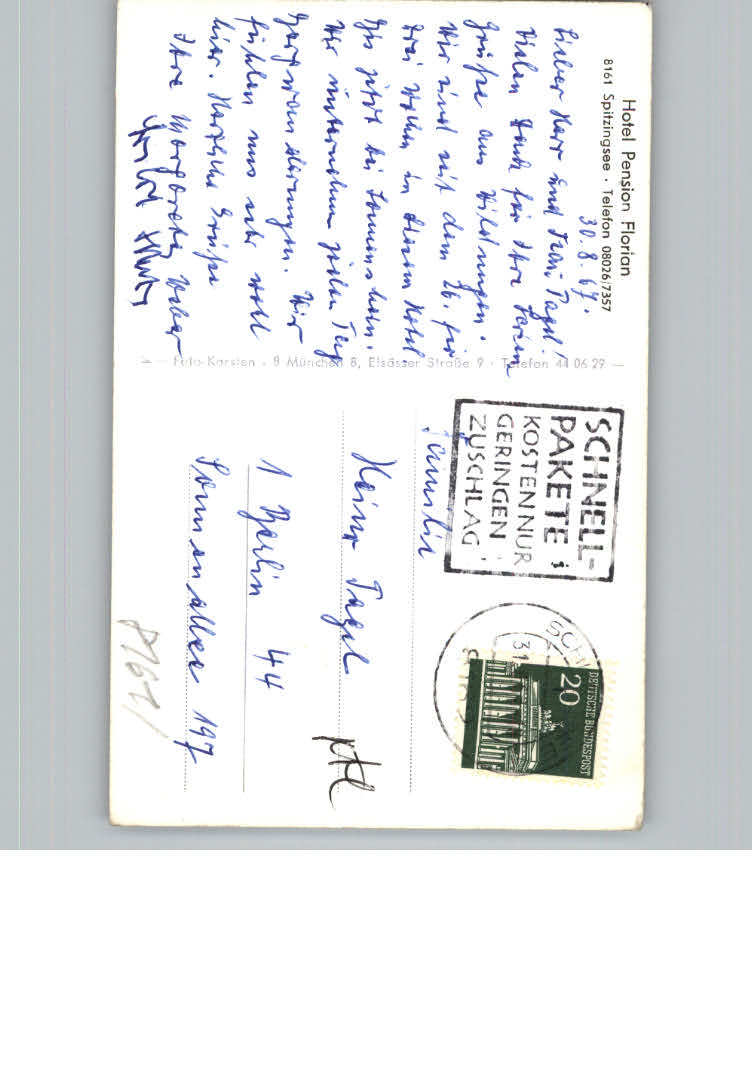 Hotel Pension Florian
8161 Spitzingsee · Telefon 08026/7357
30.8.67.
Lieber Herr und Frau Tagel!
Vielen Dank für Ihre Ferien
Grüße aus Wildungen.
Wir sind seit dem 26. für
drei Wochen in diesem Hotel
bis jetzt bei Sonnenschein.
Wir unternehmen jeden Tag
Bergwanderungen. Wir
fühlen uns sehr wohl
hier. Herzliche Grüße
Ihre Margarete Weber
Foto-Karsten · 8 München 8, Elsässer Straße 9 · Telefon 44 06 29
SCHNELL-
PAKETE
KOSTEN NUR
GERINGEN
ZUSCHLAG
DEUTSCHE BUNDESPOST
20
SCHL
31
Familie
Heinz Tagel
1 Berlin 44
Sonnenallee 197